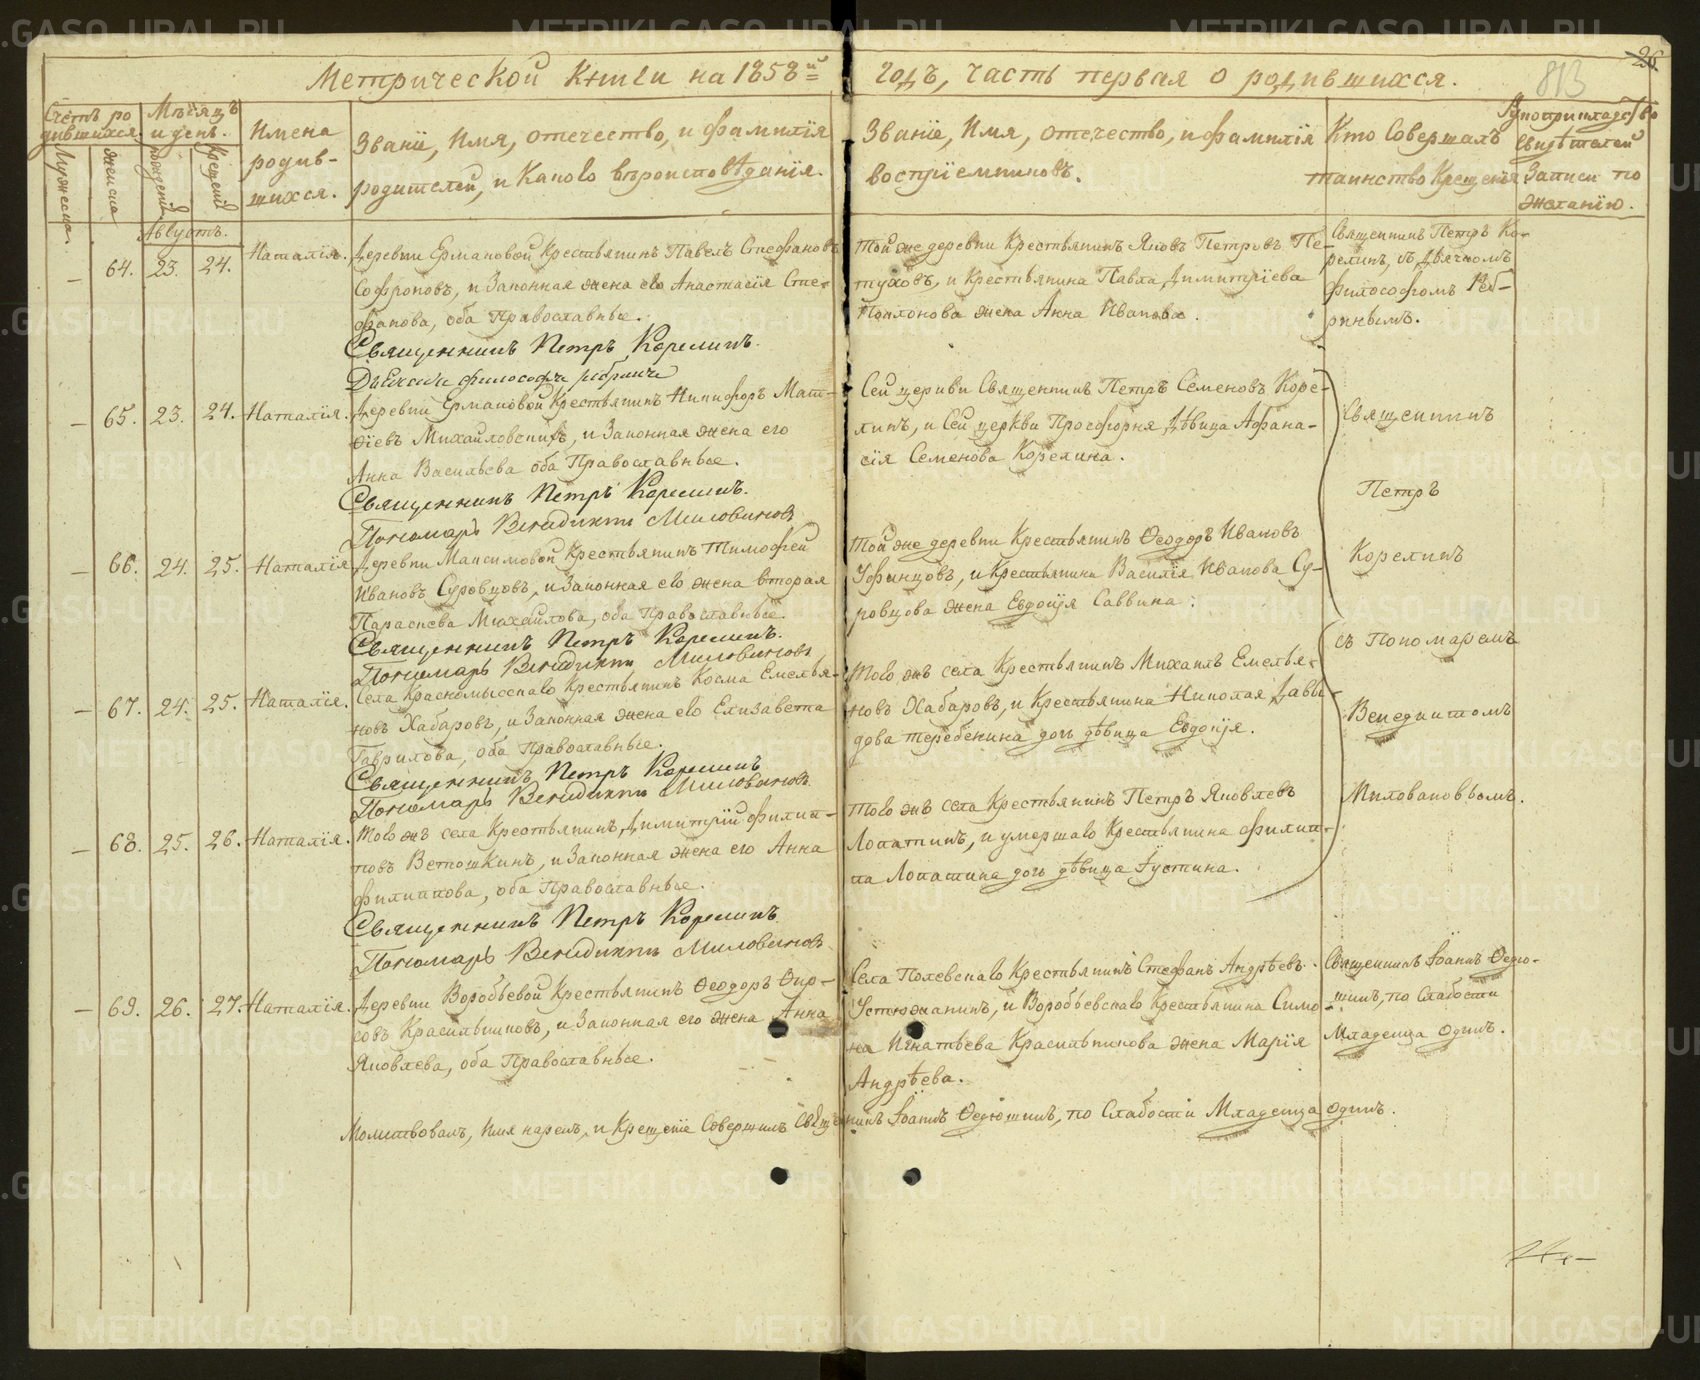 Метрической Книги на 1858й годъ, часть первая о родившихся.
26
813
Счетъ ро
дившихся.
Мужеска.
Женска
Мѣсяцъ
и день.
рожденія
Крещенія
Имена
родив-
шихся.
Званіе, Имя, отечество, и фамилія
родителей, и Какого вѣроисповѣданія.
Званіе, Имя, отечество, и фамилія
воспріемниковъ.
Кто Совершалъ
таинство Крещенія
Рукоприкладство
свидѣтелей
Записи по
желанію.
Августъ.
– 64. 23. 24. Наталія.
Деревни Ермаковой Крестьянинъ Павелъ Стефановъ
Софроновъ, и Законная жена его Анастасія Сте-
фанова, оба Православные.
Священникъ Петръ Корелинъ.
Той же деревни Крестьянинъ Яковъ Петровъ Пе-
туховъ, и Крестьянина Павла Димитріева
жена Анна Иванова.
Священникъ Петръ Ко-
релинъ, съ Дьячкомъ
Философомъ Реб-
ринымъ.
– 65. 23. 24. Наталія.
Деревни Ермаковой Крестьянинъ Никифоръ Мат-
ѳіевъ Михайловскихъ, и Законная жена его
Анна Васильева оба Православные.
Священникъ Петръ Корелинъ.
Пономарь Венедиктъ Миловановъ
Сей церкви Священникъ Петръ Семеновъ Коре-
линъ, и Сей церкви Просфорня Дѣвица Афана-
сія Семенова Корелина.
Священникъ
Петръ
Корелинъ
съ Пономаремъ
Венедиктомъ
Миловановымъ.
– 66. 24. 25. Наталія
Деревни Максимовой Крестьянинъ Тимофей
Ивановъ Суровцовъ, и Законная его жена вторая
Параскева Михайлова, оба Православные.
Священникъ Петръ Корелинъ.
Пономарь Венедиктъ Миловановъ
Той же деревни Крестьянинъ Ѳеодоръ Ивановъ
Уфинцовъ, и Крестьянина Василія Иванова Су-
ровцова жена Евдокія Саввина.
– 67. 24. 25. Наталія.
Села Красномысскаго Крестьянинъ Косма Емелья-
новъ Хабаровъ, и Законная жена его Елизавета
Гаврилова, оба Православные.
Священникъ Петръ Корелинъ
Пономарь Венедиктъ Миловановъ
Того жъ села Крестьянинъ Михаилъ Емелья-
новъ Хабаровъ, и Крестьянина Николая Давы-
дова Теребенина дочь дѣвица Евдокія.
– 68. 25. 26. Наталія.
Того жъ села Крестьянинъ Димитрій Филип-
повъ Ветошкинъ, и Законная жена его Анна
Филиппова, оба Православные.
Священникъ Петръ Корелинъ
Пономарь Венедиктъ Миловановъ
Того жъ села Крестьянинъ Петръ Яковлевъ
Лопатинъ, и умершаго Крестьянина Филип-
па Лопатина дочь дѣвица Іустина.
– 69. 26. 27. Наталія.
Деревни Воробьевой Крестьянинъ Ѳеодоръ Фир-
совъ Красильниковъ, и Законная его жена Анна
Яковлева, оба Православные.
Села Полевскаго Крестьянинъ Стефанъ Андрѣевъ
Устюжанинъ, и Воробьевскаго Крестьянина Симо-
на Игнатьева Красильникова жена Марія
Андрѣева.
Священникъ Іоаннъ Ѳедю-
шинъ, по Слабости
Младенца одинъ.
Молитвовалъ, Имя нарекъ, и Крещеніе Совершилъ Священникъ Іоаннъ Ѳедюшинъ, по Слабости Младенца одинъ.
METRIKI.GASO-URAL.RU